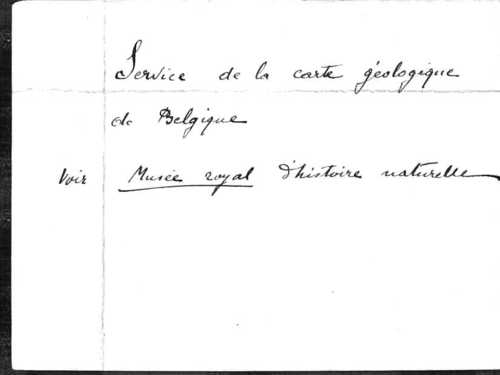 Service de la carte géologique
de Belgique
Voir Musée royal d'histoire naturelle